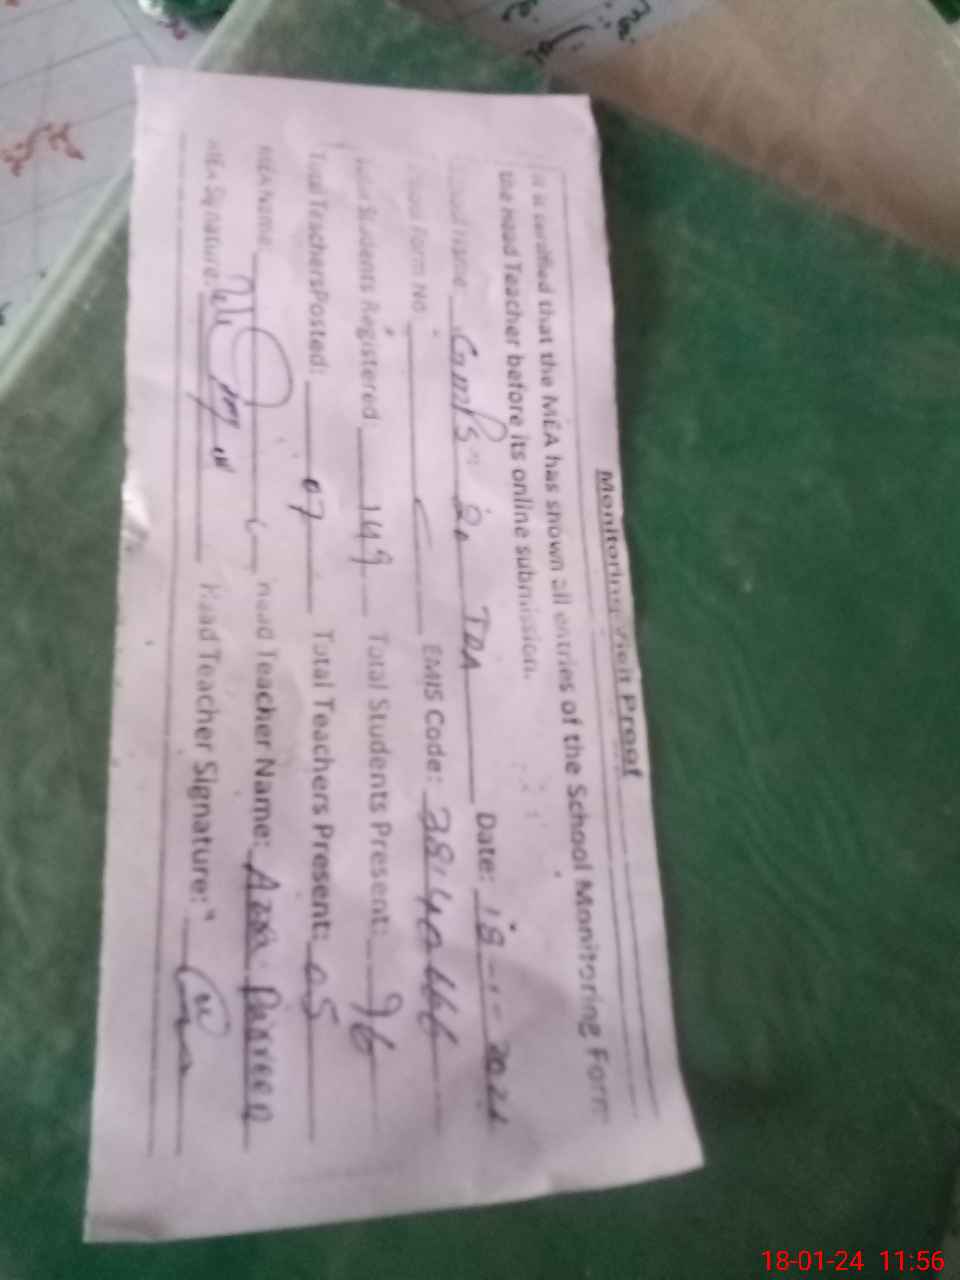 Monitoring Visit Proof
It is certified that the MEA has shown all entries of the School Monitoring Form
the Head Teacher before its online submission.
School Name Date: 18-1-2024
School Form No EMIS Code: 38140
Total Students Registered: 149 Total Students Present: 96
Total Teachers Posted: 07 Total Teachers Present: 05
MEA Name Head Teacher Name:
MEA Signature: Head Teacher Signature:
18-01-24 11:56